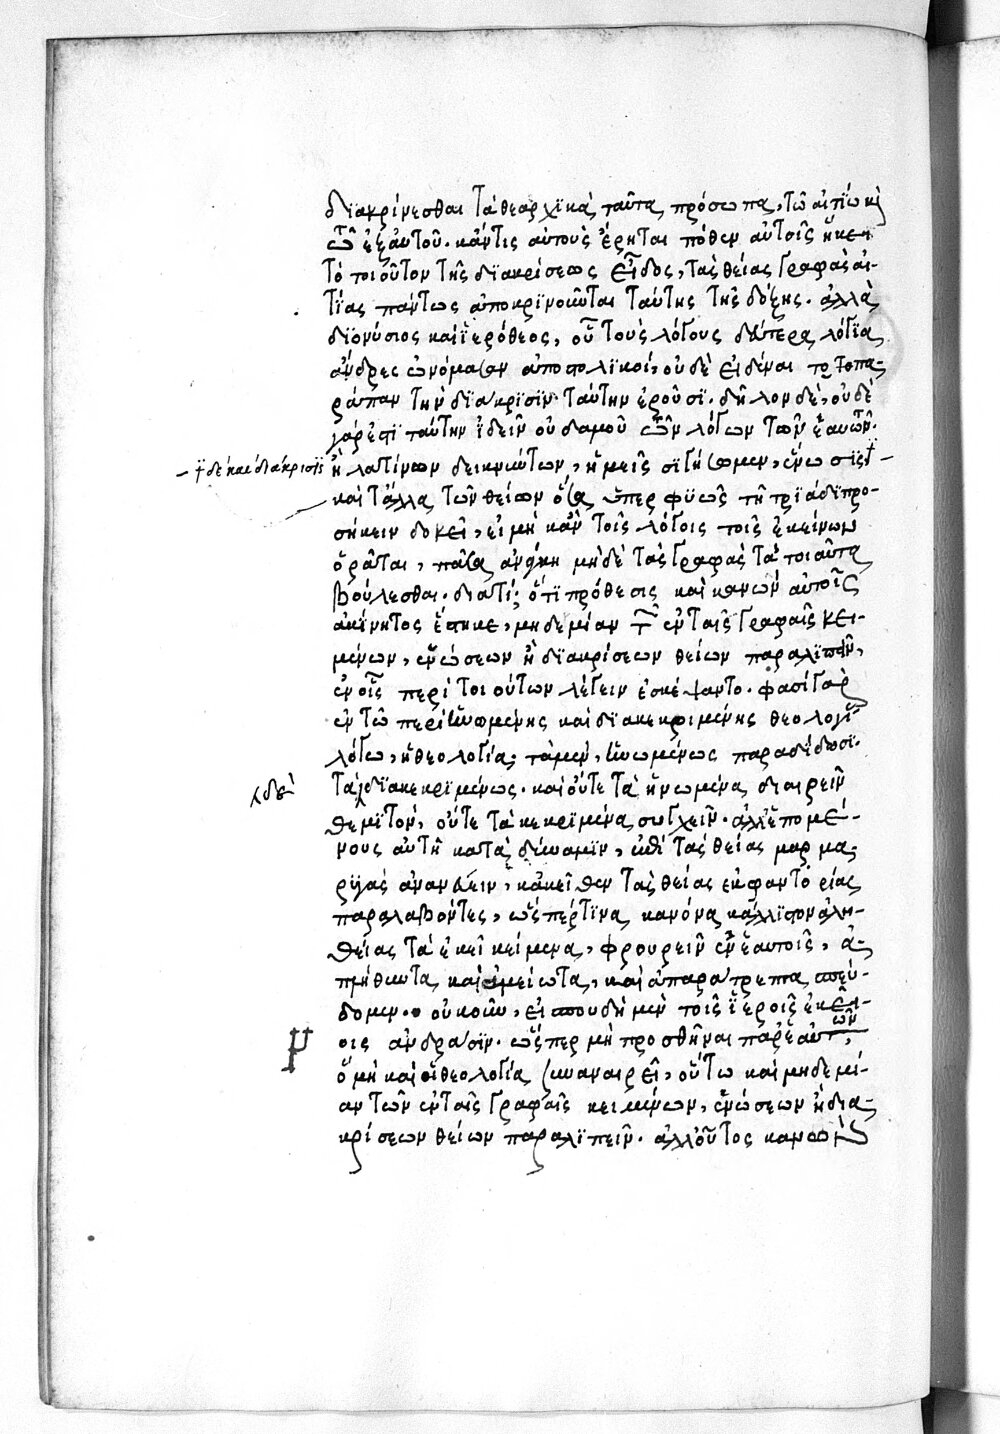 διακρίνεσθαι τὰ θεαρχικὰ ταῦτα πρόσωπα, τῶ αἰτίω κὶ
τῶ ἐξ αὐτοῦ. κἄν τις αὐτοὺς ἔρηται πόθεν αὐτοῖς ἥκει
τὸ τοιοῦτον τῆς διακρίσεως εἶδος, τὰς θείας γραφὰς αἰ-
τίας πάντως ἀποκρινοῦνται ταύτης τῆς δόξης. ἀλλὰ
διονύσιος καὶ ἱερόθεος, οὓς τοὺς λόγους δεύτερα λόγια
ἄνδρες ὠνόμασαν ἀποστολικοί, οὐδὲ εἰδέναι τοπα-
ράπαν τὴν διάκρισιν ταύτην ἐροῦσι. δῆλον δὲ, οὐδὲ
γάρ ἐστι ταύτην ἰδεῖν οὐδαμοῦ τῶν λόγων τῶν ἑαυτῶν.
– ἢ δὲ καὶ διάκρισις
ἢ λατίνων δεικνύντων, ἡμεῖς σιγήσωμεν, ἕνωσις –
καὶ τἄλλα τῶν θείων ὅσα ὑπερφυῶς τῆ τριάδι προ-
σήκειν δοκεῖ, εἰ μὴ κἂν τοῖς λόγοις τοῖς ἐκείνων
ὁρᾶται, πᾶσα ἀνάγκη μηδὲ τὰς γραφὰς τὰ τοιαῦτα
βούλεσθαι. διατί; ὅτι πρόθεσις καὶ κανὼν αὐτοῖς
ἀκίνητος ἕστηκε, μηδεμίαν τ ἐν ταῖς γραφαῖς κει-
μένων, ἑνώσεων ἢ διακρίσεων θείων παραλιπεῖν,
ἐν οἷς περὶ τοιούτων λέγειν ἐσκέψαντο. φασὶ γὰρ
ἐν τῶ περὶ ἡνωμένης καὶ διακεκριμένης θεολογί
λόγω, ἡ θεολογία, τὰ μὲν, ἡνωμένως παραδίδωσι.
τὰ διακεκριμένως. καὶ οὔτε τὰ ἡνωμένα διαιρεῖν
τὰ δὲ
θεμιτὸν, οὔτε τὰ κεκριμένα συγχεῖν. ἀλλ' ἑπομέ-
νους αὐτῆ κατὰ δύναμιν, ἐπὶ τὰς θείας μαρμα-
ρυγὰς ἀνανεύειν, κἀκεῖθεν τὰς θείας ἐκφαντορίας
παραλαβόντες, ὥσπέρ τινα κανόνα κάλλιστον ἀλη-
θείας τὰ ἐκεῖ κείμενα, φρουρεῖν ἐν ἑαυτοῖς, ἀ-
πλήθυντα καὶ ἀμείωτα, καὶ ἀπαράτρεπτα σπεύ-
δομεν. οὐκοῦν, εἰ σπουδὴ μὲν τοῖς ἱεροῖς ἐκεί-
οις ἀνδράσιν. ὥσπερ μὴ προσθῆναι παρ' ἑαυτῶν,
ὃ μὴ καὶ ἡ θεολογία συναναιρεῖ, οὕτω καὶ μηδεμί-
αν τῶν ἐν ταῖς γραφαῖς κειμένων, ἑνώσεων ἢ δια-
κρίσεων θείων παραλιπεῖν. ἀλλ' οὗτος κανὼν